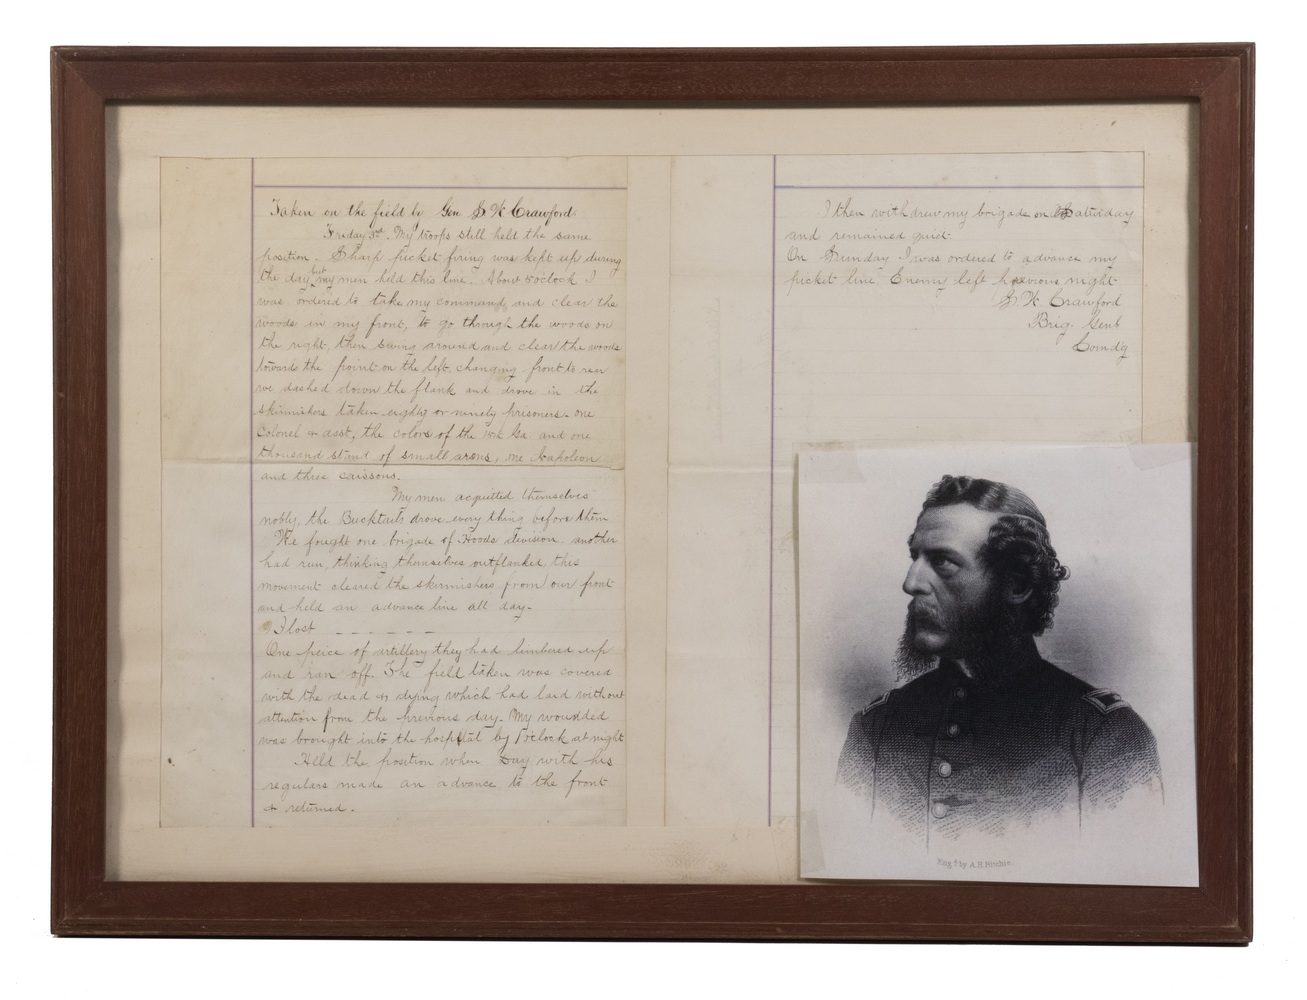 Taken on the field by Gen S W Crawford.
Friday 3rd. My troops still held the same
position. Sharp picket firing was kept up during
the day but my men held this line. About 5 oclock I
was ordered to take my command and clear the
woods in my front, to go through the woods on
the right, then swing around and clear the woods
towards the point on the left, changing front to rear
we dashed down the flank and drove in the
skirmishers taken eighty or ninety prisoners. one
Colonel & asst, the colors of the 15th Ga and one
thousand stand of small arms, one Napoleon
and three caissons.
My men acquitted themselves
nobly, the Bucktails drove every thing before them
We fought one brigade of Hoods division another
had run, thinking themselves outflanked, this
movement cleared the skirmishers from our front
and held an advance line all day-
I lost _ _ _ _ _ _
One peice of artillery they had limbered up
and ran off. The field taken was covered
with the dead & dying which had laid without
attention from the previous day. My wounded
was brought into the hospital by 1 oclock at night
Held the position when Day with his
regulars made an advance to the front
& returned.
I then withdrew my brigade on Saturday
and remained quiet
On Sunday I was ordered to advance my
picket line, Enemy left previous night
S. W Crawford
Brig. Genl
Comdg
Eng'd by A.H. Ritchie